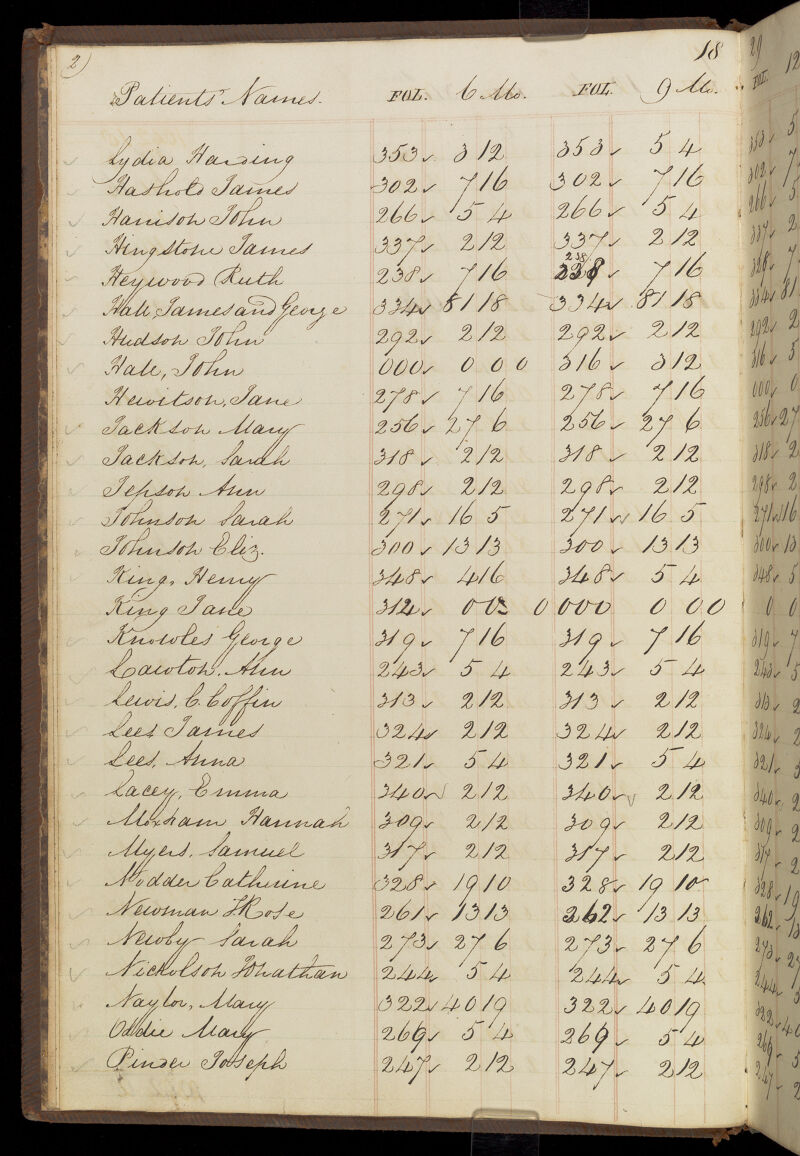 2) 18
Patients' Names. FOL. 6 Mo. FOL. 9 Mo.
Lydia Harding 353 3 12 353 5 4
Hashold James 302 7 16 302 7 16
Harrison John 266 5 4 266 5 4
Hingstone James 337 2 12 337 2 12
Heywood Ruth 238 7 16 238 7 16
Hale James and George 334 81 18 334 81 18
Hudson John 292 2 12 292 2 12
Hale, John 000 0 0 0 316 3 12
Hewitson, Jane 278 7 16 278 7 16
Jackson Mary 256 27 6 256 27 6
Jackson, Sarah 318 2 12 318 2 12
Jepson Ann 298 2 12 298 2 12
Johnson Sarah 271 16 5 271 16 5
Johnson Eliz. 300 13 13 300 13 13
King, Henry 348 4 16 348 5 4
King Jane 312 0 0 0 000 0 0 0
Knowles George 319 7 16 319 7 16
Lawton, Ann 243 5 4 243 5 4
Lewis, C. Coffin 313 2 12 313 2 12
Lees James 324 2 12 324 2 12
Lees, Anna 321 5 4 321 5 4
Lacey, Emma 340 2 12 340 2 12
Moxham Hannah 309 2 12 309 2 12
Myers, Samuel 317 2 12 317 2 12
Nodder Catherine 328 19 10 328 19 10
Newman H Rose 261 13 13 262 13 13
Newby Sarah 273 27 6 273 27 6
Nickolson Jonathan 244 5 4 244 5 4
Naylor, Mary 322 40 19 322 40 19
Oddie Mary 269 5 4 269 5 4
Pinder Joseph 247 2 12 247 2 12